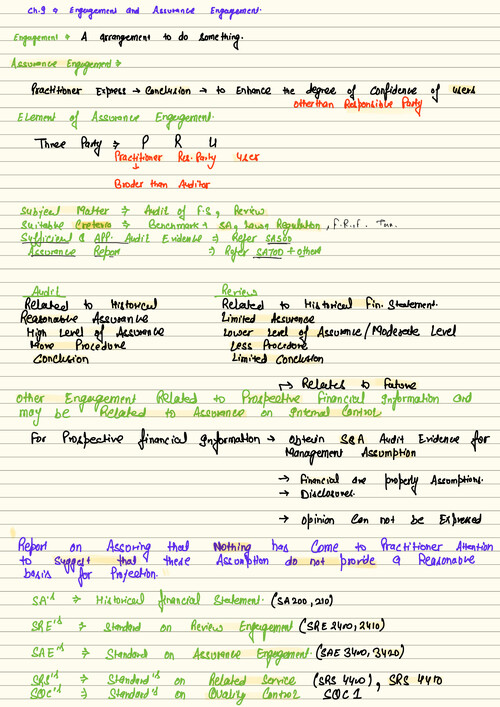 Ch.9 ⇒ Engagement and Assurance Engagement.
Engagement ⇒ A arrangement to do something.
Assurance Engagement ⇒
Practitioner Express → Conclusion → to Enhance the degree of Confidence of users
other than Responsible Party
Element of Assurance Engagement.
Three Party ⇒ P R U
Practitioner Res. Party User
↓
Broder than Auditor
Subject Matter ⇒ Audit of F.S, Review
Suitable Creteria ⇒ Benchmark + SA, Laws Regulation, F.R.F.
Sufficient & APP. Audit Evidence ⇒ Refer SA500
Assurance Report ⇒ Refer SA700 + others
Audit Review
Related to Historical Related to Historical Fin. Statement.
Reasonable Assurance Limited Assurance
High Level of Assurance Lower Level of Assurance/Moderate Level
More Procedure Less Procedure
Conclusion Limited Conclusion
↳ Relates to Future
other Engagement Related to Prospective Financial Information and
may be Related to Assurance on Internal Control
For Prospective financial Information → obtain S&A Audit Evidence for
Management Assumption
→ Financial are properly Assumptions.
→ Disclosures.
→ opinion Can not be Expressed
Report on Assuring that Nothing has Come to Practitioner Attention
to suggest that these Assumption do not provide a Reasonable
basis for Projection.
SA's ⇒ Historical financial Statement. (SA200, 210)
SRE's ⇒ Standard on Review Engagement (SRE 2400, 2410)
SAE's ⇒ Standard on Assurance Engagement. (SAE 3400, 3420)
SRS's ⇒ Standard's on Related Service (SRS 4400), SRS 4410
SQC's ⇒ Standard's on Quality Control SQC 1